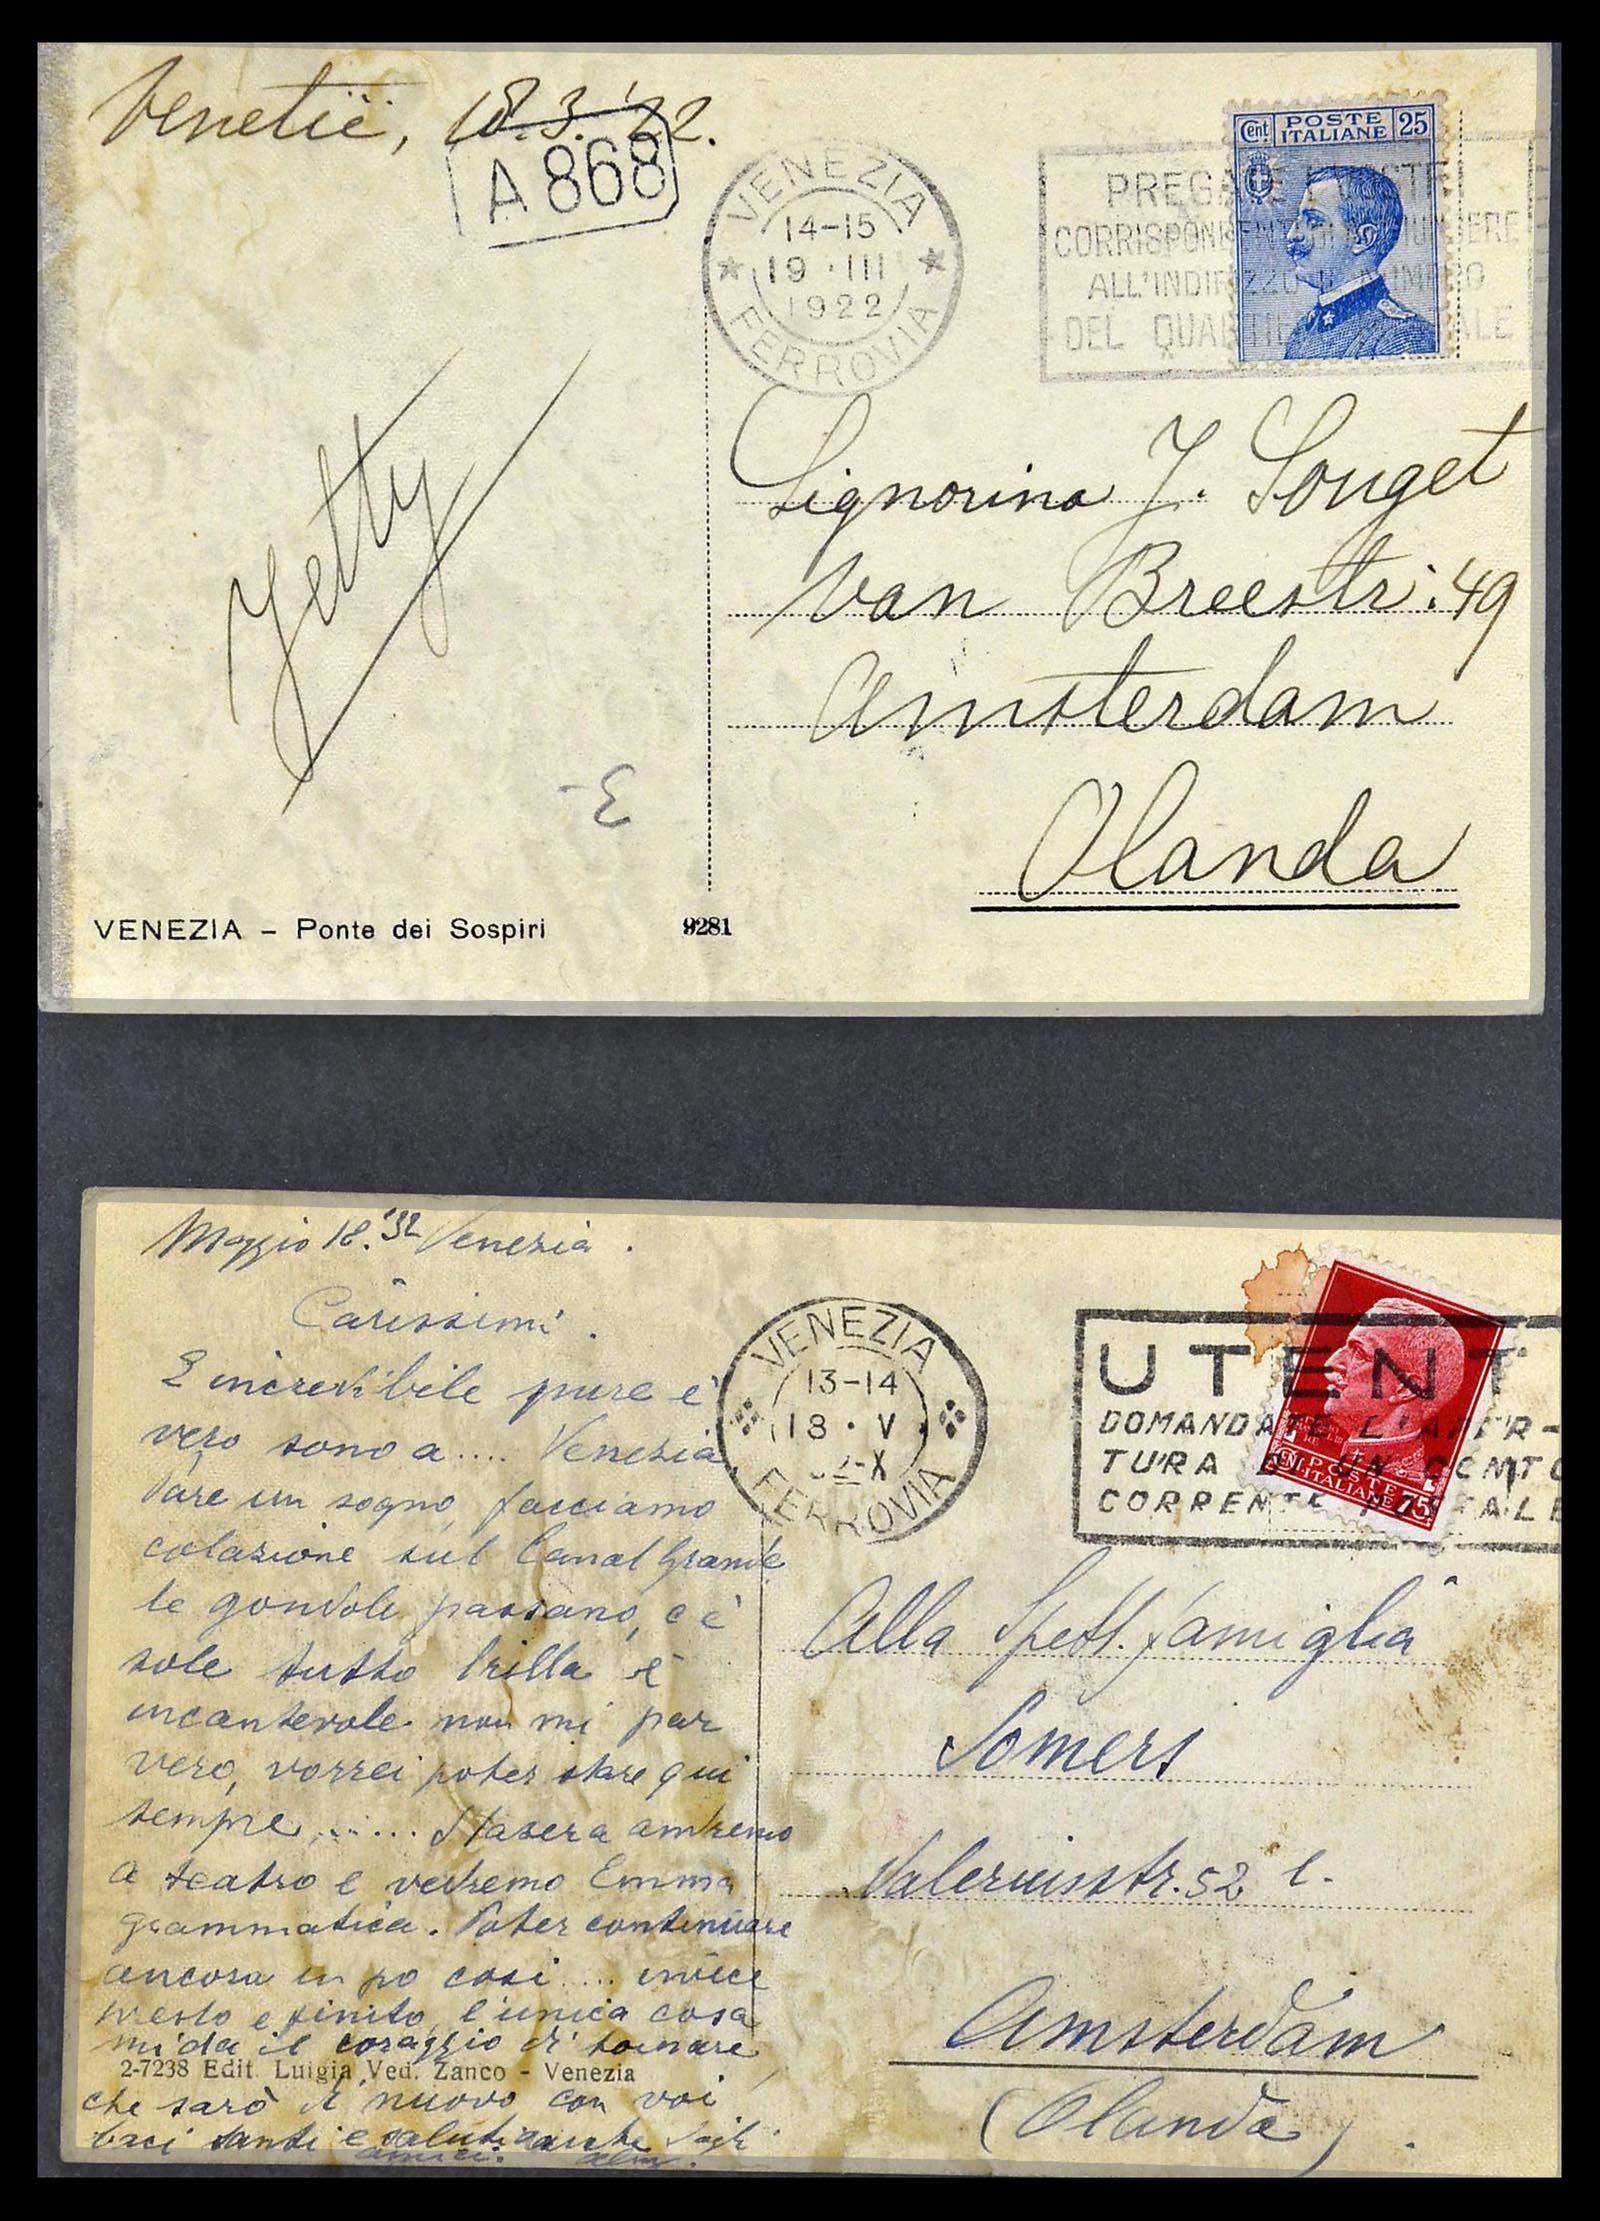 Venetië, 18.3.'22.
A 868
VENEZIA
14-15
19 · III
1922
FERROVIA
Cent POSTE ITALIANE 25
PREGATE
CORRISPONDENTI
ALL'INDIRIZZO NUMERO
DEL QUARTIERE POSTALE
Jetty
Signorina J. Souget
van Breestr: 49
Amsterdam
Olanda
3-
VENEZIA – Ponte dei Sospiri 9281
Maggio 18.'32 Venezia.
Carissimi.
E incredibile pure e'
vero sono a.... Venezia
Pare un sogno, facciamo
colazione sul Canal Grande
le gondole passano, c è
sole tutto brilla è
incantevole non mi par
vero, vorrei poter stare qui
sempre...... Stasera andremo
a teatro e vedremo Emma
Grammatica. Poter continuare
ancora un po cosi.... invece
presto e finito, l'unica cosa
mi da il coraggio di tornare
2-7238 Edit. Luigia Ved. Zanco - Venezia
che sarò di nuovo con voi
baci tanti e saluti anche
amici.
VENEZIA
13-14
18 · V
32-X
FERROVIA
UTENT
DOMANDATE L'APER-
TURA DI UN CONTO
CORRENTE POSTALE
POSTE
ITALIANE 75
Alla Spett. famiglia
Somers
Valeriusstr. 52
Amsterdam
(Olanda).